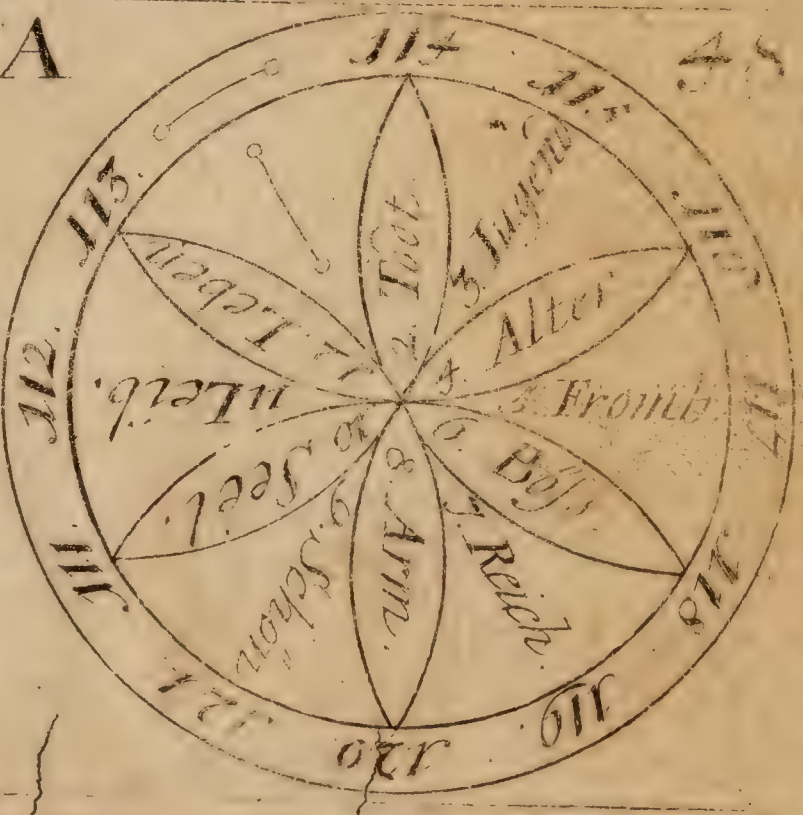 A
48
111.
112.
113.
114
115
116
117
118
119
120
121
2. Todt.
3. Jugend
4. Alter
5. Fromb
6. Böß.
7. Reich.
8. Arm.
9. Schön
10 Seel.
11 Leib.
12. Leben